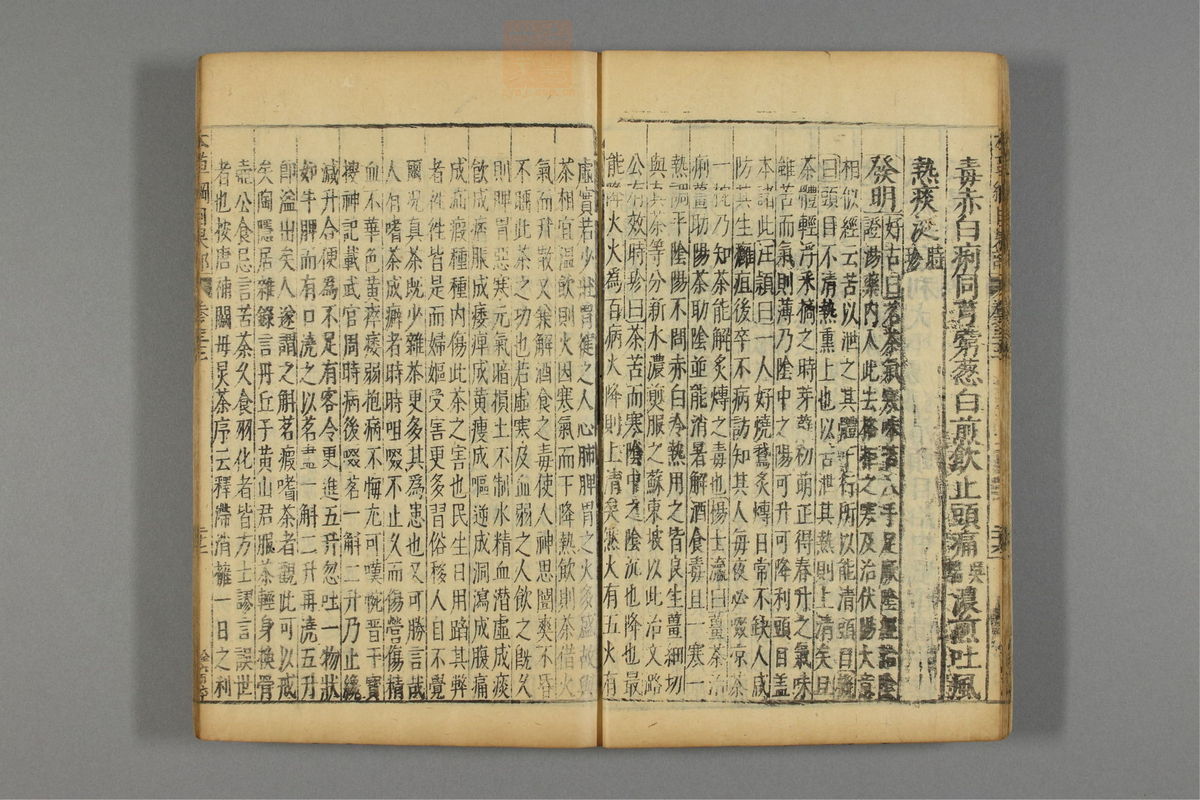 毒赤白痢同芎藭葱白煎飲止頭痛吳瑞濃煎吐風
熱痰涎時珍
發明好古曰茗茶氣寒味苦入手足厥陰經治陰
證湯藥內入此去格拒之寒及治伏陽大意
相似經云苦以泄之其體下行所以能清頭目機
曰頭目不清熱熏上也以苦泄其熱則上清矣且
茶體輕浮采摘之時芽蘗初萌正得春升之氣味
雖苦而氣則薄乃陰中之陽可升可降利頭目蓋
本諸此汪頴曰一人好燒鵞炙煿日常不缺人咸
防其生癰疽後卒不病訪知其人每夜必啜凉茶
一椀乃知茶能解炙煿之毒也楊士瀛曰薑茶治
痢薑助陽茶助陰並能消暑解酒食毒且一寒一
熱調平陰陽不問赤白冷熱用之皆良生薑細切
與真茶等分新水濃煎服之蘇東坡以此治文潞
公有效時珍曰茶苦而寒陰中之陰沉也降也最
能降火火為百病火降則上清矣然火有五火有
虛實若少壯胃健之人心肺脾胃之火多盛故與
茶相宜溫飲則火因寒氣而下降熱飲則茶借火
氣而升散又兼解酒食之毒使人神思闓爽不昏
不睡此茶之功也若虛寒及血弱之人飲之既久
則脾胃惡寒元氣暗損土不制水精血潛虛成痰
飲成痞脹成痿痺成黃瘦成嘔逆成洞瀉成腹痛
成疝瘕種種內傷此茶之害也民生日用蹈其弊
者徃徃皆是而婦嫗受害更多習俗移人自不覺
爾況真茶既少雜茶更多其為患也又可勝言哉
人有嗜茶成癖者時時咀啜不止久而傷營傷精
血不華色黃瘁痿弱抱病不悔尤可嘆惋晋干寶
搜神記載武官周時病後啜茗一斛二升乃止纔
減升合便為不足有客令更進五升忽吐一物狀
如牛脾而有口澆之以茗盡一斛二升再澆五升
即溢出矣人遂謂之斛茗瘕嗜茶者觀此可以戒
矣陶隱居雜錄言丹丘子黃山君服茶輕身換骨
壼公食忌言苦茶久食羽化者皆方士謬言誤世
者也按唐補闕母炅茶序云釋滯消壅一日之利
本草綱目果部 卷三十二